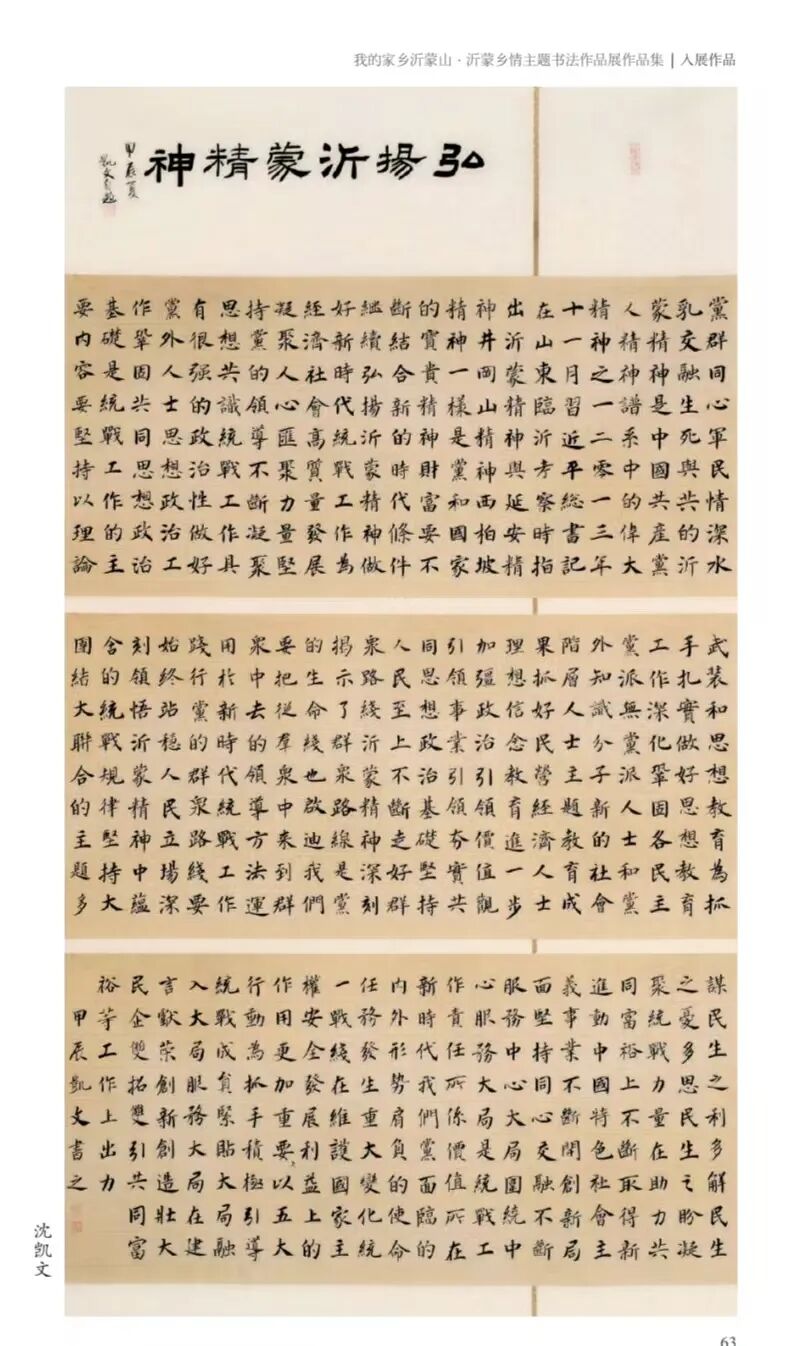 我的家乡沂蒙山·沂蒙乡情主题书法作品展作品集 | 入展作品
弘揚沂蒙精神
甲辰夏
凱文自題
黨群同心軍民情深水
乳交融生死與共的沂
蒙精神是中國共産黨
人精神譜系中的偉大
精神之一二零一三年
十一月習近平總書記
在山東臨沂考察時指
出沂蒙精神與延安精
神井岡山精神西柏坡
精神一樣是黨和國家
的寶貴精神財富要不
斷結合新的時代條件
繼續弘揚沂蒙精神做
好新時代統戰工作為
經濟社會高質量發展
凝聚人心匯聚力量堅
持黨的領導不斷凝聚
思想共識統戰工作具
有很强的政治性做好
黨外人士思想政治工
作鞏固共同思想政治
基礎是統戰工作的主
要内容要堅持以理論
武裝和思想教育為抓
手扎實做好思想教育
工作深化鞏固各民主
黨派無黨派人士和黨
外知識分子新的社會
階層人士主題教育成
果抓好民營經濟人士
理想信念教育進一步
加疆政治引領價值觀
引領事業引領夯實共
同思想政治基礎堅持
人民至上不斷走好群
衆路綫沂蒙精神深刻
揭示了群衆路線是黨
的生命綫也啟迪我們
要把從羣衆中來到群
衆中去的領導方法運
用於新時代統戰工作
踐行黨的群衆路綫要
始終站穩人民立場深
刻領悟沂蒙精神中蘊
含的統戰規律堅持大
團結大聯合的主題多
謀民生之利多解民生
之憂多思民生之盼凝
聚統戰力量在助力共
同富裕上不斷取得新
進動中國特色社會主
義事業不斷開創新局
面堅持同心交融不斷
服務中心大局團統中
心服務大局是統戰工
作責任所係價值所在
新時代我們黨面臨的
内外形勢肩負的使命
任務發生重大變化統
一戰綫在維護國家主
權安全發展利益上的
作用更加重要以五大
行動為抓手積極引導
統戰成員緊貼大局融
入大局服務大局在建
言獻策創新創造壯大
民企雙拓雙引共同富
裕等工作上出力
甲辰凱文書之
沈凯文
63